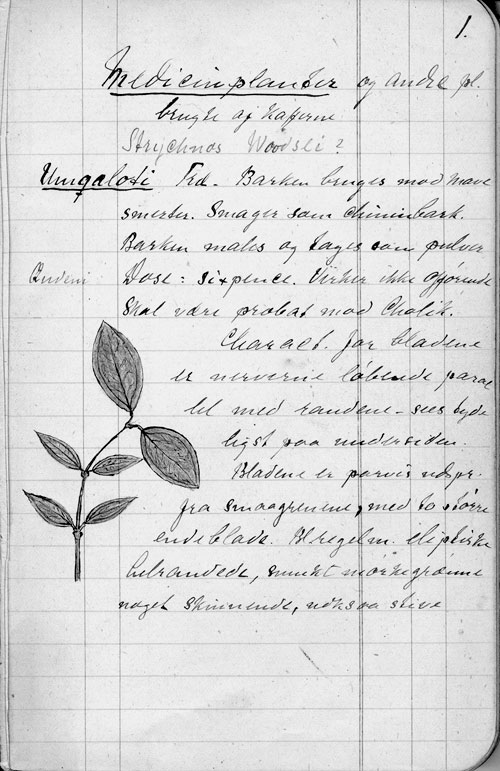 1.
Medicinplanter og andre pl.
brugte af Kaferne
Strychnos Woodsei?
Umqaloti Træ. Barken bruges mod mave
smerter. Smager som chininbark.
Barken males og tages som pulver
Dose: sixpence. Virker ikke afførende
Skal være probat mod Cholik.
Charact. for bladene
er nerverne løbende paral
lel med randene - sees tyde
ligst paa undersiden.
Bladene er parvis udspr.
fra smaagrenene, med to større
endeblade. Bl regelm. eliptiske
helrandede, smukt mørkegrønne
noget skinnende, ogsaa stive